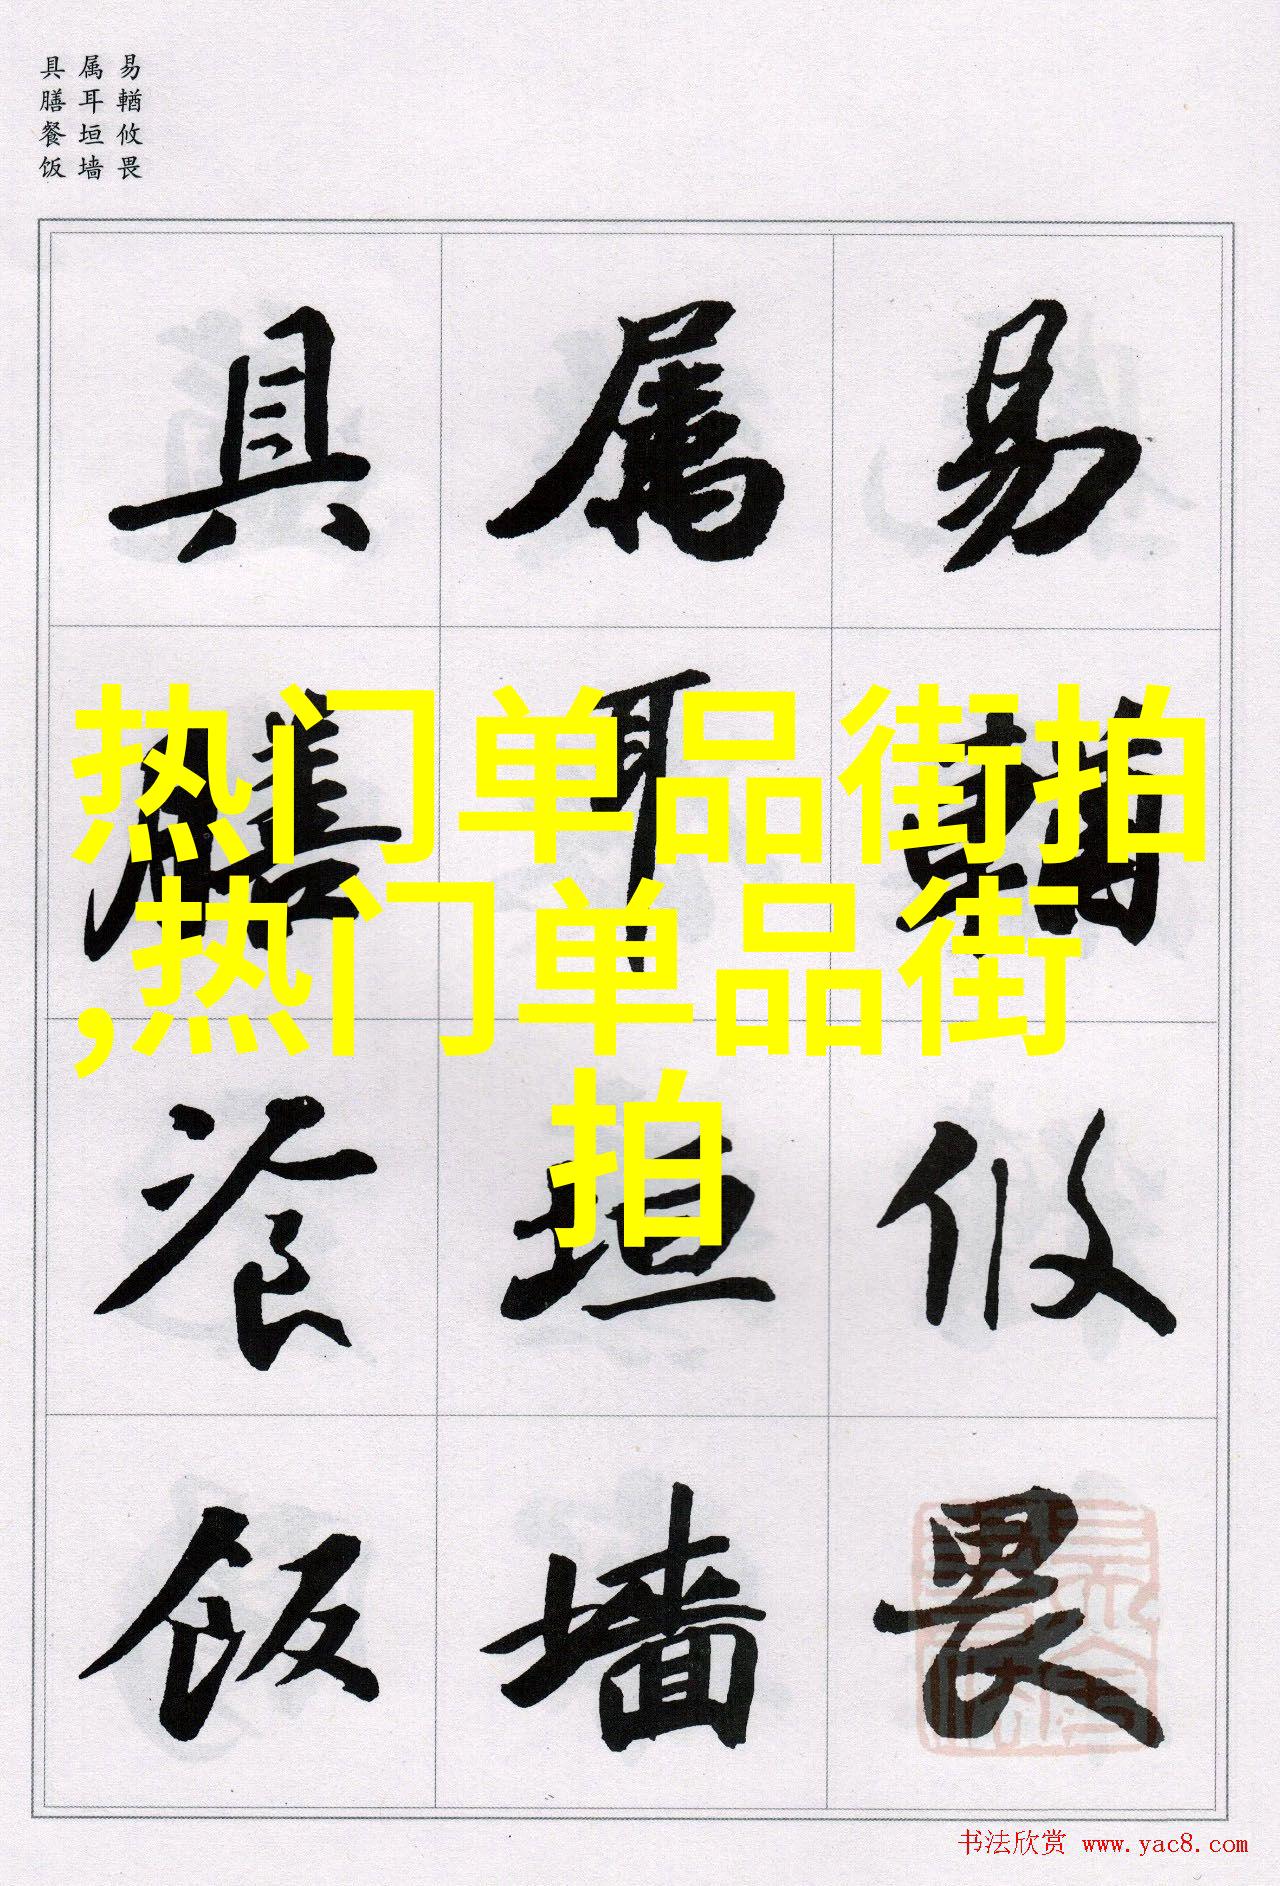 易輶攸畏
属耳垣墙
具膳餐饭
易輶攸畏
属耳垣墙
具膳餐饭
热门单品街拍
,热门单品街
拍
书法欣赏 www.yac8.com